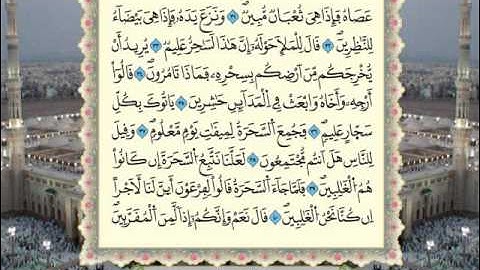 عَصَاهُ فَإِذَا هِيَ ثُعْبَانٌ مُّبِينٌ وَنَزَعَ يَدَهُۥ فَإِذَا هِيَ بَيْضَآءُ
لِلنَّٰظِرِينَ قَالَ لِلْمَلَإِ حَوْلَهُۥٓ إِنَّ هَٰذَا لَسَٰحِرٌ عَلِيمٌ يُرِيدُ أَنْ
يُّخْرِجَكُم مِّنَ اَرْضِكُم بِسِحْرِهِۦ فَمَاذَا تَامُرُونَ قَالُوٓاْ
أَرْجِهِۦ وَأَخَاهُ وَابْعَثْ فِي اِ۬لْمَدَآئِنِ حَٰشِرِينَ يَاتُوكَ بِكُلِّ
سَحَّارٍ عَلِيمٍ فَجُمِعَ اَ۬لسَّحَرَةُ لِمِيقَٰتِ يَوْمٍ مَّعْلُومٍ وَقِيلَ
لِلنَّاسِ هَلَ اَنتُم مُّجْتَمِعُونَ لَعَلَّنَا نَتَّبِعُ اُ۬لسَّحَرَةَ إِن كَانُواْ
هُمُ اُ۬لْغَٰلِبِينَ فَلَمَّا جَآءَ اَ۬لسَّحَرَةُ قَالُواْ لِفِرْعَوْنَ أَئِنَّ لَنَا لَأَجْراً
اِن كُنَّا نَحْنُ اُ۬لْغَٰلِبِينَ قَالَ نَعَمْ وَإِنَّكُمُۥٓ إِذاً لَّمِنَ اَ۬لْمُقَرَّبِينَ